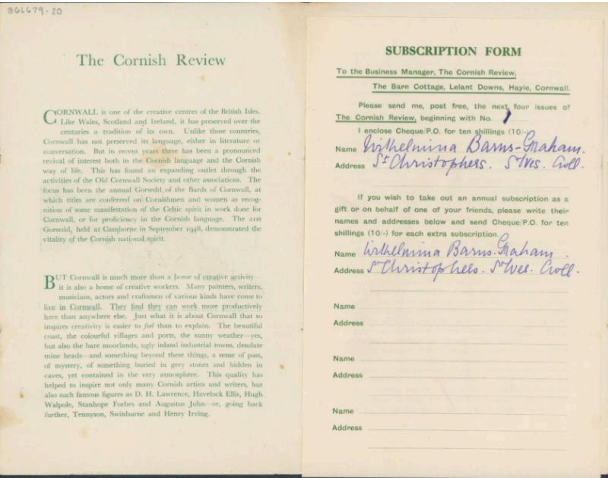 BGL679-20
The Cornish Review
CORNWALL is one of the creative centres of the British Isles.
Like Wales, Scotland and Ireland, it has preserved over the
centuries a tradition of its own. Unlike those countries,
Cornwall has not preserved its language, either in literature or
conversation. But in recent years there has been a pronounced
revival of interest both in the Cornish language and the Cornish
way of life. This has found an expanding outlet through the
activities of the Old Cornwall Society and other associations. The
focus has been the annual Gorsedd of the Bards of Cornwall, at
which titles are conferred on Cornishmen and women as recog-
nition of some manifestation of the Celtic spirit in work done for
Cornwall, or for proficiency in the Cornish language. The 21st
Gorsedd, held at Camborne in September 1948, demonstrated the
vitality of the Cornish national spirit.
BUT Cornwall is much more than a home of creative activity—
it is also a home of creative workers. Many painters, writers,
musicians, actors and craftsmen of various kinds have come to
live in Cornwall. They find they can work more productively
here than anywhere else. Just what it is about Cornwall that so
inspires creativity is easier to feel than to explain. The beautiful
coast, the colourful villages and ports, the sunny weather—yes,
but also the bare moorlands, ugly inland industrial towns, desolate
mine heads—and something beyond these things, a sense of past,
of mystery, of something buried in grey stones and hidden in
caves, yet contained in the very atmosphere. This quality has
helped to inspire not only many Cornish artists and writers, but
also such famous figures as D. H. Lawrence, Havelock Ellis, Hugh
Walpole, Stanhope Forbes and Augustus John—or, going back
further, Tennyson, Swinburne and Henry Irving.
SUBSCRIPTION FORM
To the Business Manager, The Cornish Review,
The Bare Cottage, Lelant Downs, Hayle, Cornwall.
Please send me, post free, the next four issues of
The Cornish Review, beginning with No. 1
I enclose Cheque/P.O. for ten shillings (10/-)
Name Wilhelmina Barns-Graham.
Address St Christophers. St Ives. Cwll.
If you wish to take out an annual subscription as a
gift or on behalf of one of your friends, please write their
names and addresses below and send Cheque/P.O. for ten
shillings (10/-) for each extra subscription.
Name Wilhelmina Barns-Graham.
Address St Christophers. St Ives. Cwll.
Name
Address
Name
Address
Name
Address